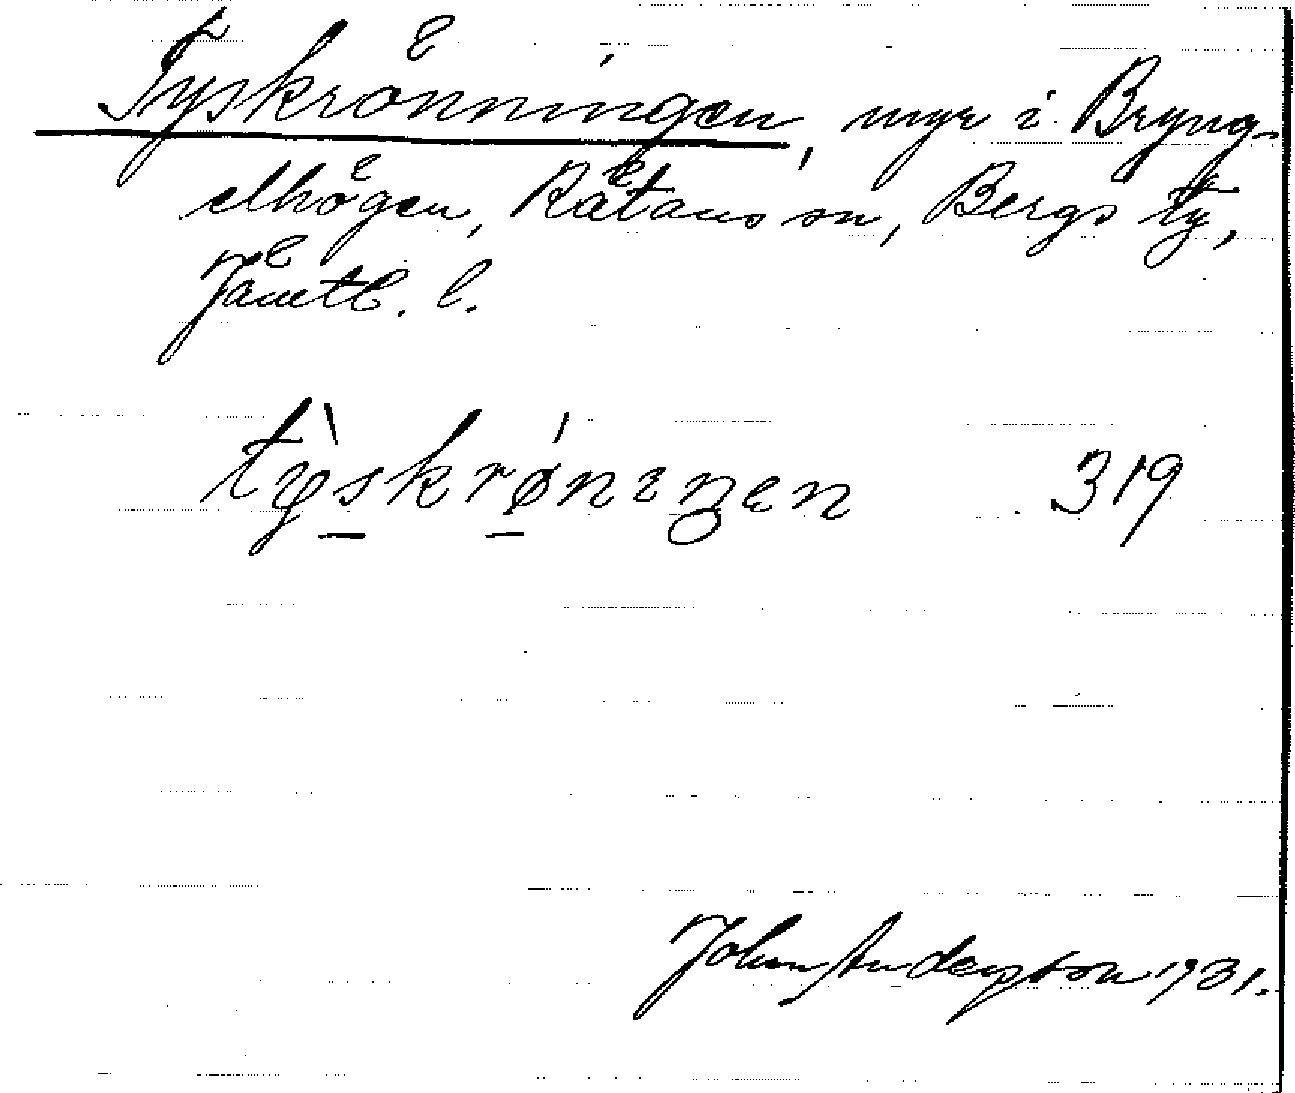 Tyskrönningen, myr i Bryng-
elhögen, Råtans sn, Bergs tg,
Jämtl. l.
tỳskrø̀nıŋen 319
John Anderzon 1931.